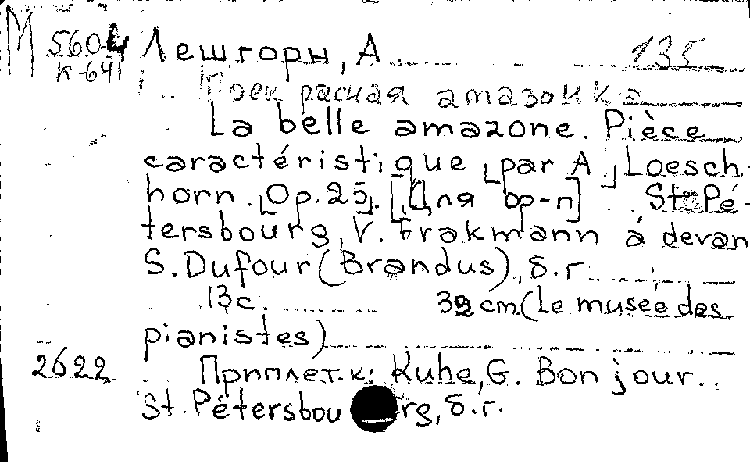 М 5604 Лешгорн, А 135
К-641 Прекрасная амазонка
La belle amazone. Pièce
caractéristique [par A.] Loesch-
horn. [Op. 25]. [Для фр-п] St. Pé-
tersbourg, V. Brakmann à devan
S. Dufour (Brandus), б. г.
13 с. 32 cm (Le musée des
pianistes)
2622 Приплет. к: Kuhe, G. Bonjour.
St. Pétersbourg, б. г.